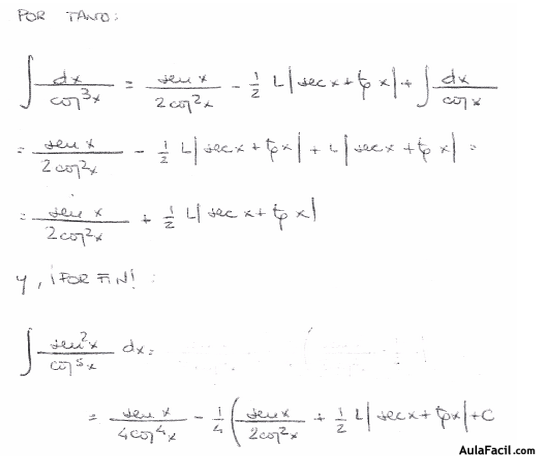 POR TANTO:
∫ dx/cos³x = sen x/2cos²x - 1/2 L|sec x + tg x| + ∫ dx/cos x
= sen x/2cos²x - 1/2 L|sec x + tg x| + L|sec x + tg x| =
= sen x/2cos²x + 1/2 L|sec x + tg x|
Y, ¡POR FIN!:
∫ sen²x/cos⁵x dx =
= sen x/4cos⁴x - 1/4 (sen x/2cos²x + 1/2 L|sec x + tg x| + C
AulaFacil.com